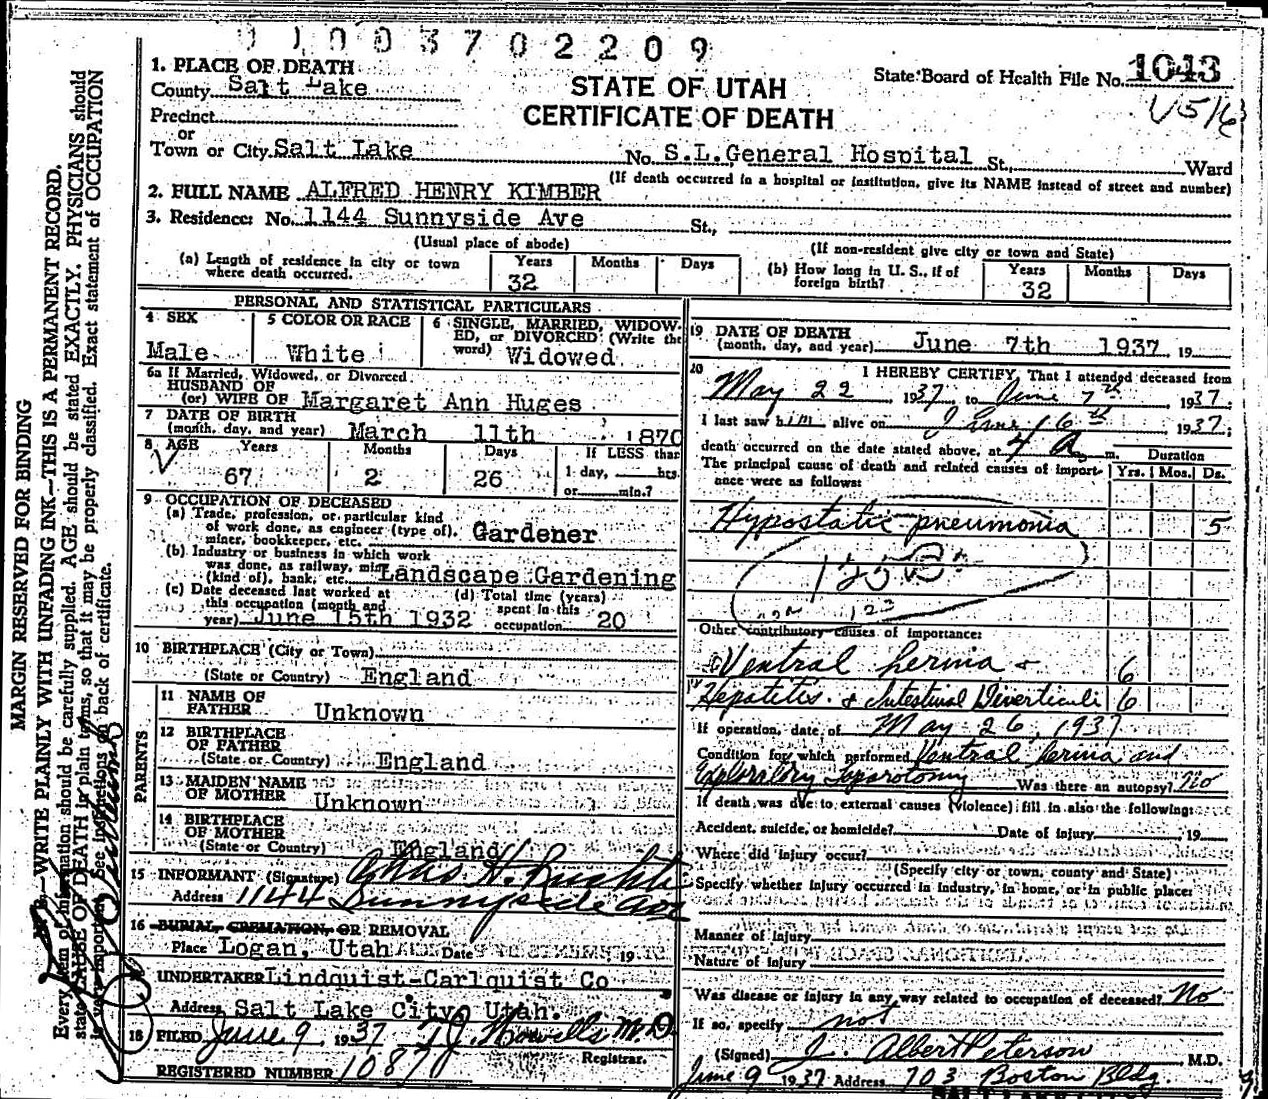 0 1 0 0 3 7 0 2 2 0 9
State Board of Health File No. 1043
STATE OF UTAH
CERTIFICATE OF DEATH
1. PLACE OF DEATH
County Salt Lake
Precinct
or
Town or City Salt Lake No. S.L.General Hospital St., Ward
(If death occurred in a hospital or institution, give its NAME instead of street and number)
2. FULL NAME ALFRED HENRY KIMBER
3. Residence: No. 1144 Sunnyside Ave St.,
(Usual place of abode) (If non-resident give city or town and State)
(a) Length of residence in city or town where death occurred. Years 32 Months Days
(b) How long in U. S., if of foreign birth? Years 32 Months Days
PERSONAL AND STATISTICAL PARTICULARS
4 SEX Male
5 COLOR OR RACE White
6 SINGLE, MARRIED, WIDOWED, or DIVORCED (Write the word) Widowed
6a If Married, Widowed, or Divorced
HUSBAND OF
(or) WIFE OF Margaret Ann Huges
7 DATE OF BIRTH
(month, day, and year) March 11th 1870
8 AGE Years 67 Months 2 Days 26 If LESS than 1 day, hrs. or min.?
9 OCCUPATION OF DECEASED
(a) Trade, profession, or particular kind
of work done, as engineer (type of),
miner, bookkeeper, etc. Gardener
(b) Industry or business in which work
was done, as railway, mine
(kind of), bank, etc. Landscape Gardening
(c) Date deceased last worked at
this occupation (month and
year) June 15th 1932
(d) Total time (years)
spent in this
occupation 20
10 BIRTHPLACE (City or Town)
(State or Country) England
PARENTS
11 NAME OF
FATHER Unknown
12 BIRTHPLACE
OF FATHER
(State or Country) England
13 MAIDEN NAME
OF MOTHER Unknown
14 BIRTHPLACE
OF MOTHER
(State or Country) England
15 INFORMANT (Signature) Chas H.
Address 1144 Sunnyside Ave
16 BURIAL, CREMATION, OR REMOVAL
Place Logan, Utah Date 19
UNDERTAKER Lindquist-Carlquist Co
Address Salt Lake City, Utah.
18 FILED June 9, 1937 T.J. Howells M.D.
Registrar.
REGISTERED NUMBER 1087
19 DATE OF DEATH
(month, day, and year) June 7th 1937 19
20 I HEREBY CERTIFY, That I attended deceased from
May 22 1937, to June 7th 1937.
I last saw him alive on June 6th 1937;
death occurred on the date stated above, at 4 A. m. Duration
The principal cause of death and related causes of importance were as follows: Yrs. Mos. Ds.
Hypostatic pneumonia 5
Other contributory causes of importance:
Ventral hernia + 6
Hepatitis & Intestinal Diverticuli 6
If operation, date of May 26, 1937
Condition for which performed Ventral hernia and
Exploratory Laparotomy Was there an autopsy? No
If death was due to external causes (violence) fill in also the following:
Accident, suicide, or homicide? Date of injury 19
Where did injury occur?
(Specify city or town, county and State)
Specify whether injury occurred in industry, in home, or in public place:
Manner of injury
Nature of injury
Was disease or injury in any way related to occupation of deceased? No
If so, specify not
(Signed) J. Albert Peterson M.D.
June 9 1937 Address 703 Boston Bldg.
SALT LAKE CITY
MARGIN RESERVED FOR BINDING
N. B.—WRITE PLAINLY WITH UNFADING INK—THIS IS A PERMANENT RECORD.
Every item of information should be carefully supplied. AGE should be stated EXACTLY. PHYSICIANS should
state CAUSE OF DEATH in plain terms, so that it may be properly classified. Exact statement of OCCUPATION
is very important. See instructions on back of certificate.